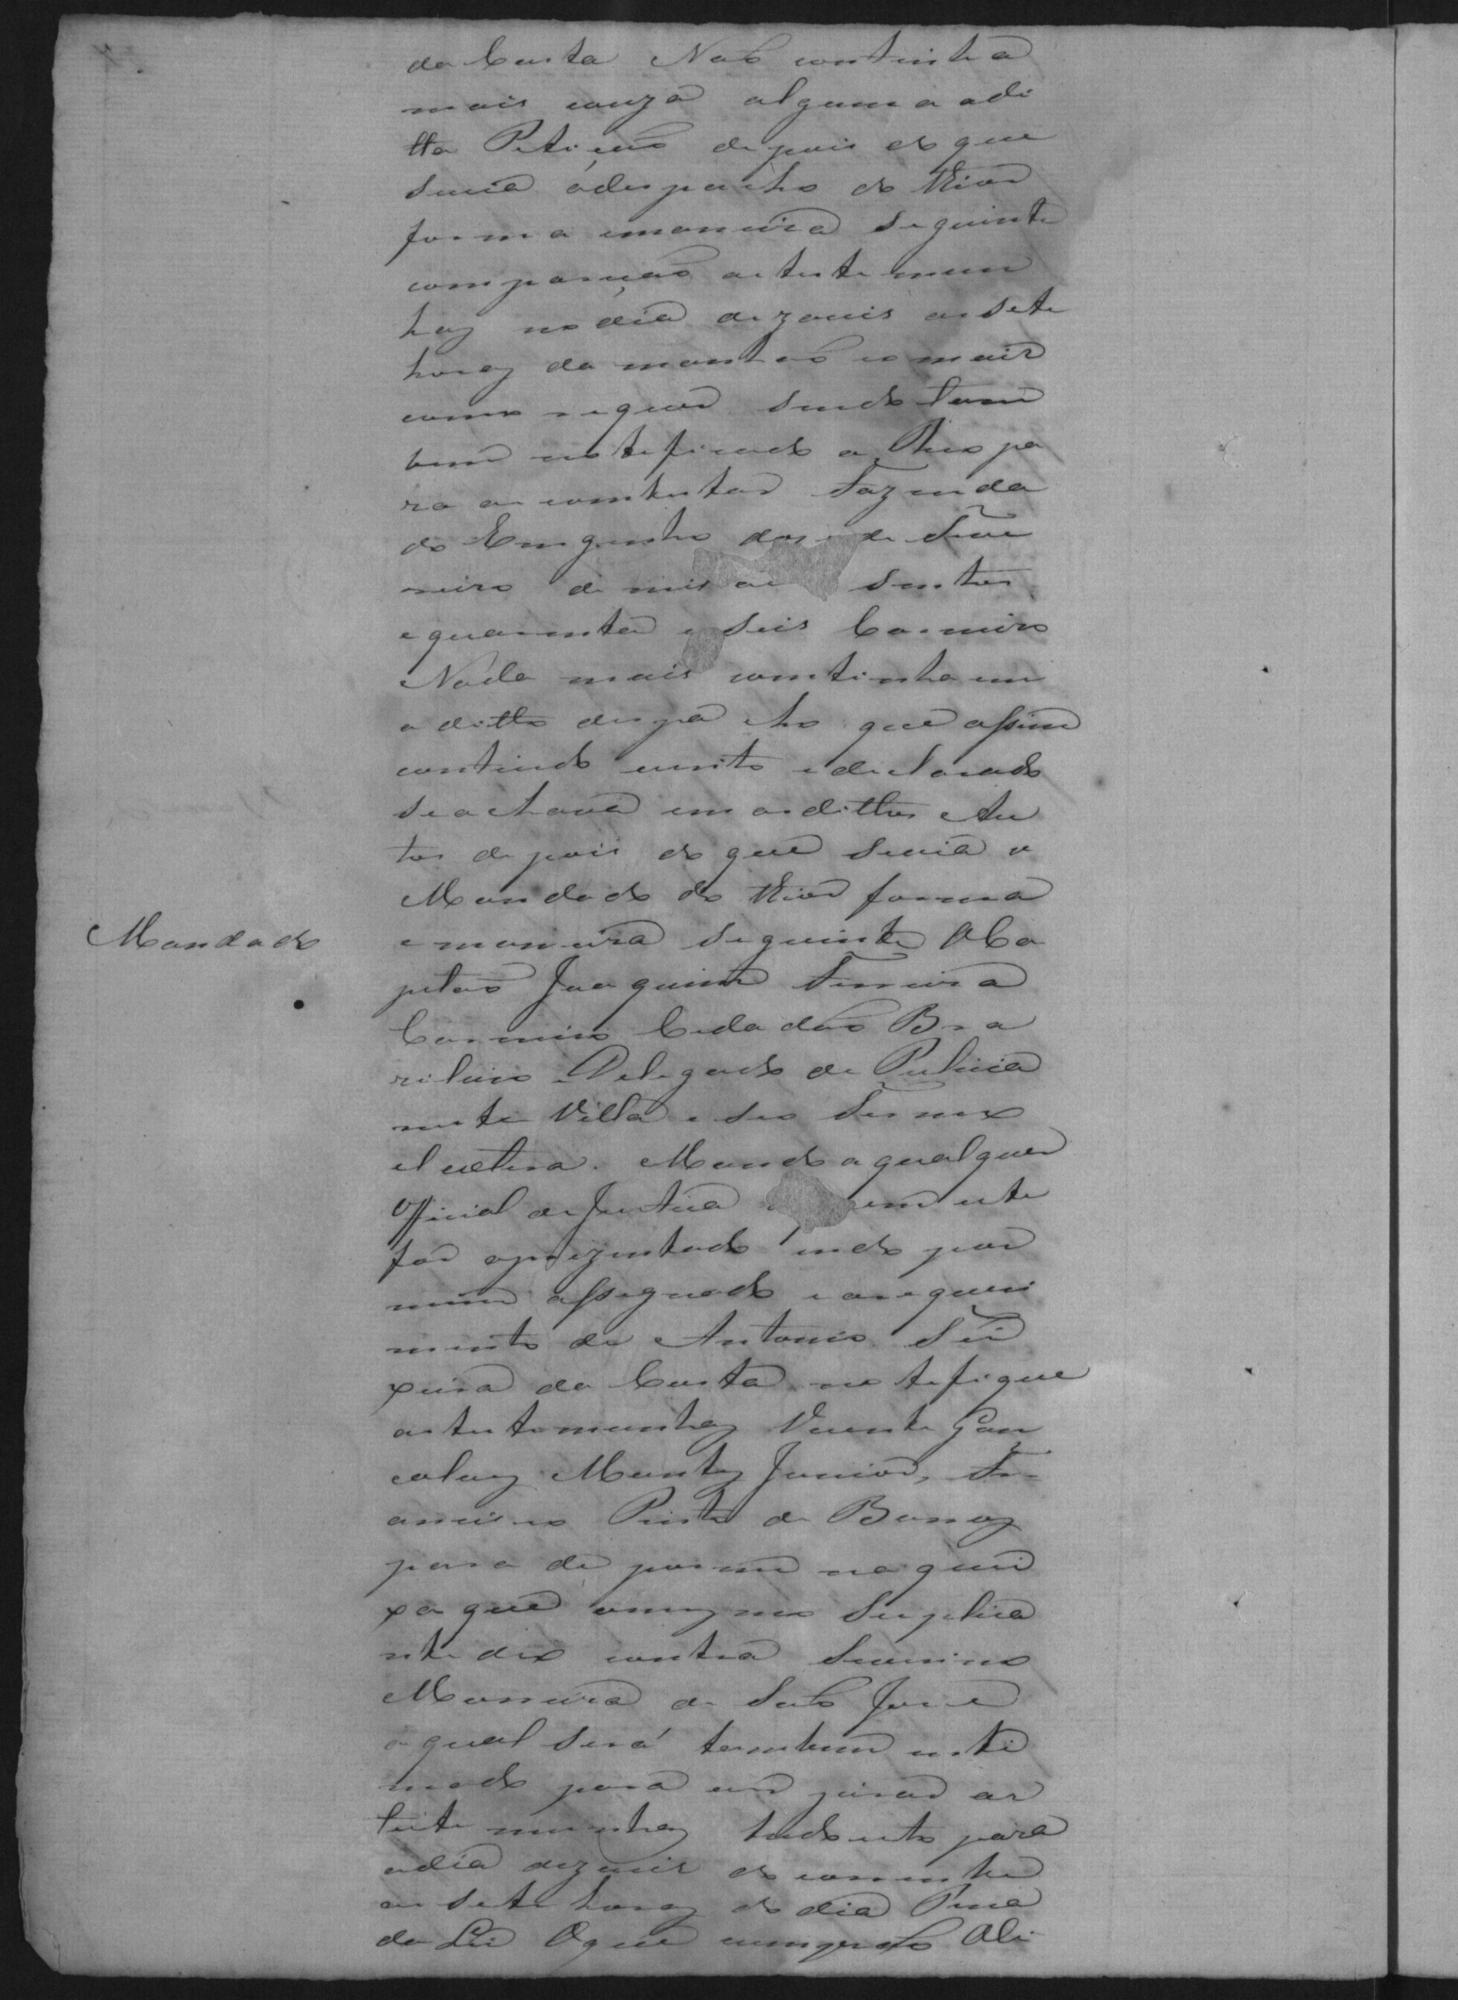 da Costa Naõ continha
mais couza alguma adi
tta Peticaõ depois do que
sevia odespacho do theor
forma emaneira seguinte
compareçaõ as testemun
has nodia dezaseis as sete
horas da manhaõ e mais
como requer sendo tam
bem notificado o Reo pa
ra as contestar Fazenda
do Emgenho doze de Feve
reiro de mil oi sentos
equarenta e seis Carneiro
Nada mais continha em
o ditto despacho que assim
contiudo escrito edeclarado
seachava em osdittos Au
tos depois do que sevia o
Mandado do theor forma
emaneira seguinte OCa
Mandado
pitaõ Joaquim Ferreira
Carneiro Cidadaõ Bra
zileiro Delegado de Pulicia
nesta Villa e seo Termo
el cetera. Mando aqualquer
Official de Justica em este
for aprezentado indo por
mim assignado earequeri
mento de Antonio Tei
xeira da Costa notefique
astestemunhas Vicente Gon
calves Mendes Junior, Fr
ancisco Pinto de Barros
para deporem naquei
xa que omesmo Suplica
nte dêo contra Severino
Moreira de Saõ José
oqual será tambem inti
mado para ver jurar as
teste munhas tudo isto para
odia dezaseis do corrente
as sete horas do dia Pena
da Lei Oque cumpraõ Oli